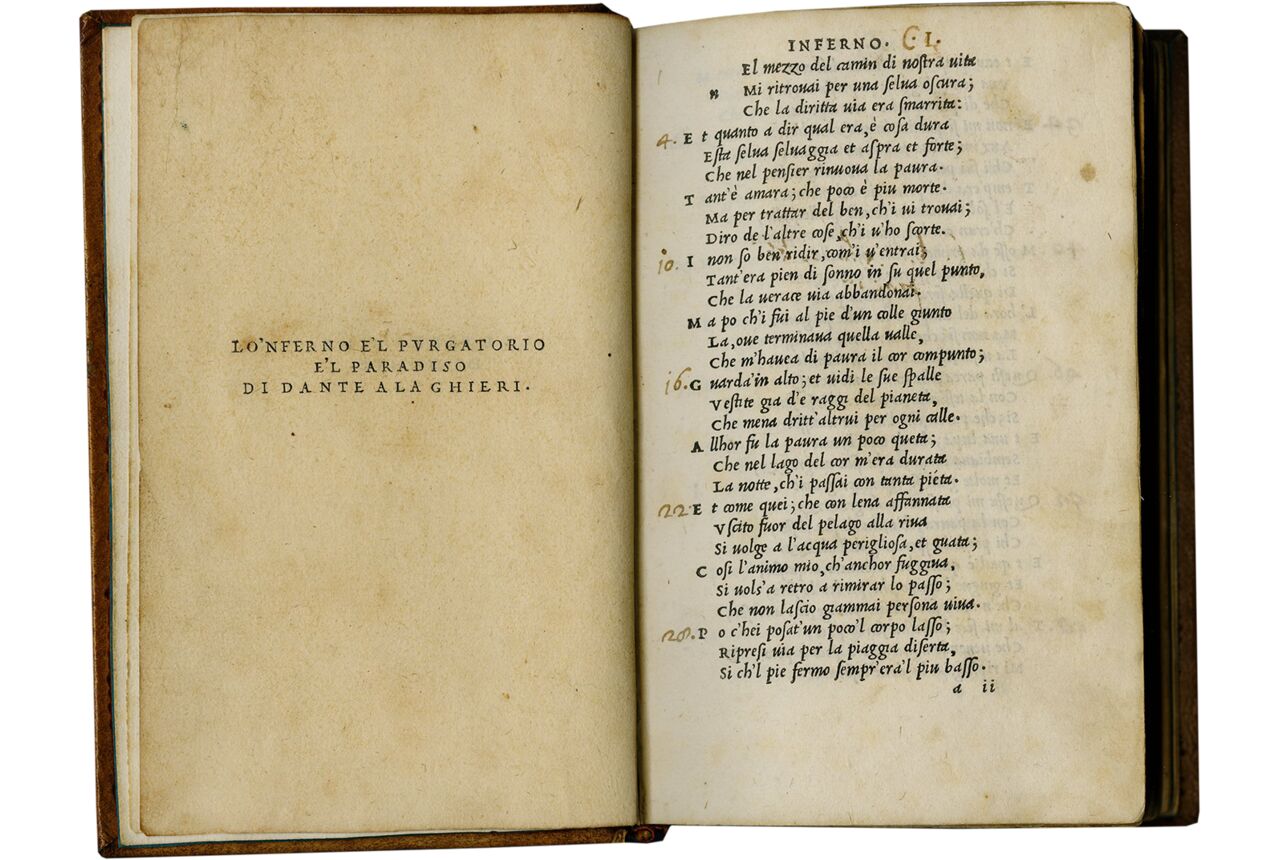 LO'NFERNO E'L PVRGATORIO
E'L PARADISO
DI DANTE ALAGHIERI.
INFERNO. C I.
El mezzo del camin di nostra uita
n Mi ritrouai per una selua oscura;
Che la diritta uia era smarrita:
4. E t quanto a dir qual era, è cosa dura
Esta selua seluaggia et aspra et forte;
Che nel pensier rinuoua la paura.
T ant'è amara; che poco è piu morte.
Ma per trattar del ben, ch'i ui trouai;
Diro de l'altre cose, ch'i u'ho scorte.
10. I non so ben ridir, com'i u'entrai;
Tant'era pien di sonno in su quel punto,
Che la uerace uia abbandonai.
M a po ch'i fui al pie d'un colle giunto
La, oue terminaua quella ualle,
Che m'hauea di paura il cor compunto;
16. G uarda'in alto; et uidi le sue spalle
Vestite gia d'e raggi del pianeta,
Che mena dritt'altrui per ogni calle.
A llhor fu la paura un poco queta;
Che nel lago del cor m'era durata
La notte, ch'i passai con tanta pièta.
22 E t come quei; che con lena affannata
Vscito fuor del pelago alla riua
Si uolge a l'acqua perigliosa, et guata;
C osi l'animo mio, ch'anchor fuggiua,
Si uols'a retro a rimirar lo passo;
Che non lascio giammai persona uiua.
28. P o c'hei posat'un poco'l corpo lasso;
Ripresi uia per la piaggia diserta,
Si ch'l pie fermo sempr'era'l piu basso.
a ii